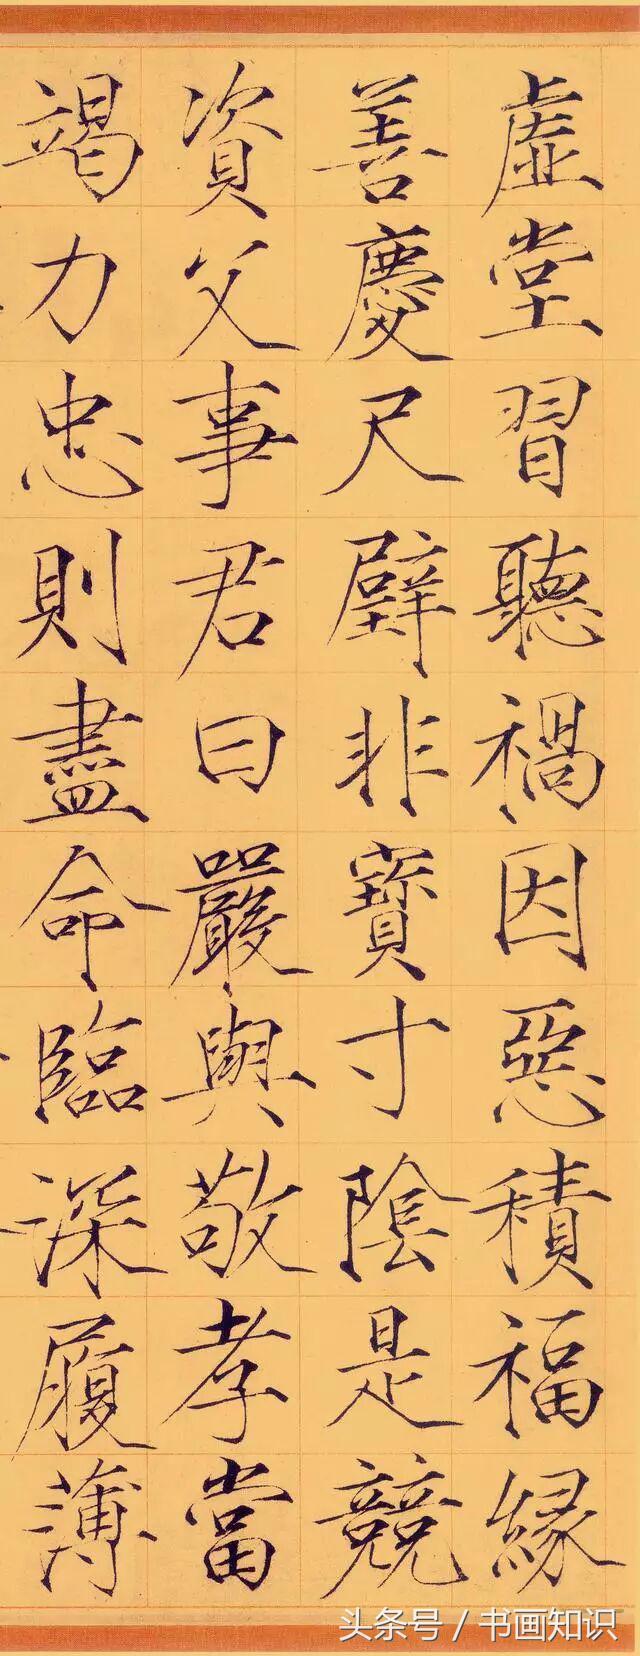 虛堂習聽禍因惡積福緣
善慶尺璧非寶寸陰是競
資父事君曰嚴與敬孝當
竭力忠則盡命臨深履薄
头条号 / 书画知识